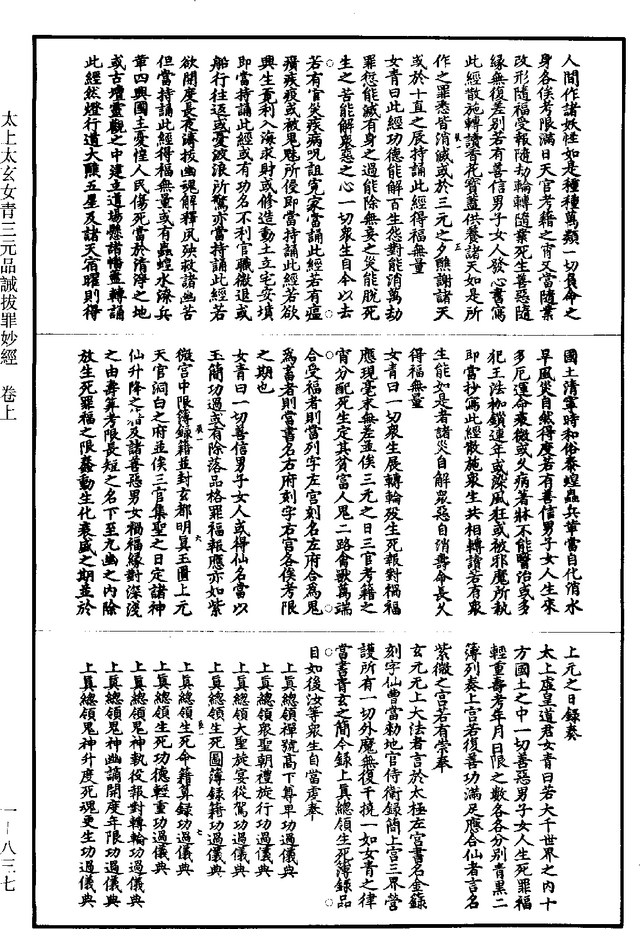 太上太玄女青三元品誡拔罪妙經 卷上
一—八三七
人間作諸妖性如是種種萬類一切負命之
身各俟考限滿日天官考籍之宵又當隨業
改形隨福受報隨劫輪轉隨業死生善惡隨
緣無復差別若有善信男子女人發心書寫
此經散施轉讀香花寶蓋供養諸天如是所
作之罪悉皆消滅或於三元之夕醮謝諸天
或於十直之辰持誦此經得福無量
女青曰此經功德能解百生怨對能消萬劫
罪愆能滅有身之過能除無妄之災能脫死
生之苦能解衆惡之心一切衆生自今以去
若有官災疾病呪詛冤家當誦此經若有瘟
㾮疾疫或被鬼魅所侵即當持誦此經若欲
興生賣利入海求財或修造動土立宅安墳
即當持誦此經或有功名不利官職微退或
船行往返或憂波浪所驚亦當持誦此經若
欲開度長夜濤拔幽魂解釋風殃救諸幽苦
但當持誦此經得福無量或有蟲蝗水潦兵
革四興國主憂惶人民傷死當於清淨之地
或古壇靈觀之中建立道場懸諸幡蓋轉誦
此經然燈行道大醮五星及諸天宿曜則得
國土清寧時和俗泰蝗蟲兵革當自化消水
旱風災自然得度若有善信男子女人生來
多厄運命衰微或久病著牀不能醫治或多
犯王法枷鎖連年或染風狂或被邪魔所執
即當抄寫此經散施衆生共相轉讀若有衆
生能如是者諸災自解衆惡自消壽命長久
得福無量
女青曰一切衆生展轉輪役生死報對禍福
應現毫末無差並俟三元之日三官考籍之
宵分配死生定其貧富人鬼二路禽獸萬端
合受福者則當列字左宮刻名左府合爲鬼
爲畜者則當書名右府刻字右宮各俟考限
之期也
女青曰一切善信男子女人或得仙名當以
玉簡功過或有除落品格罪福報應亦如紫
微宮中限簿録籍並封玄都明真玉匱上元
天官洞白之府並俟三官集聖之日定諸神
仙升降之階及諸善惡男女禍福緣對深淺
之由壽筭考限長短之名下至九幽之內除
放生死罪福之限蠢動生化衰盛之期並於
上元之日録奏
太上虛皇道君女青曰若大千世界之內十
方國土之中一切善惡男子女人生死罪福
輕重壽考年月日限之數各各分別青黑二
簿列奏上宮若復善功滿足應合仙者言名
紫微之宮若有崇奉
玄元无上大法者言於太極左宮書名金錄
刻字仙曹當勑地官侍衛録簡上宮三界營
護所有一切外魔無復干撓一如女青之律
當書青玄之簡今録上真總領生死簿録品
目如後汝等衆生自當虔奉
上真總領禪號高下尊卑功過儀典
上真總領衆聖朝禮旋行功過儀典
上真總領大聖旋宴從駕功過儀典
上真總領生死圖簿録籍功過儀典
上真總領生死命籍算録功過儀典
上真總領生死功德輕重功過儀典
上真總領鬼神執役報對轉輪功過儀典
上真總領鬼神幽謫開度年限功過儀典
上真總領鬼神升度死魂更生功過儀典